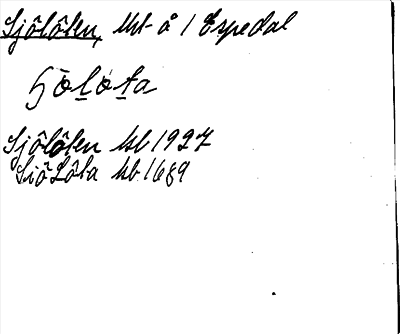 Sjölôten, Utt å i Espedal
Sölota
Sjölôten kb 1927
Siö Lôta kb 1689